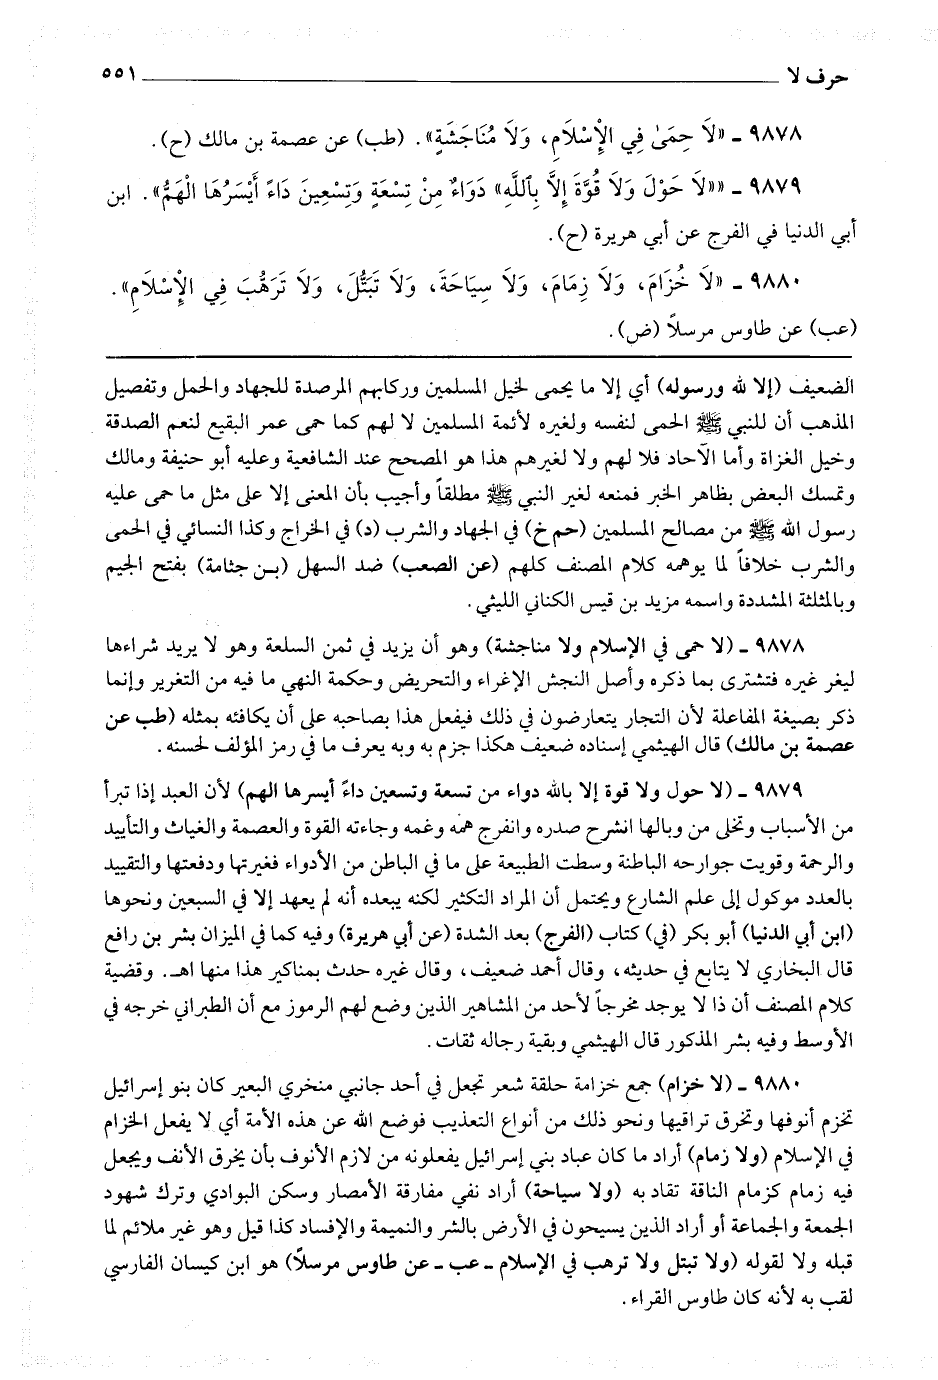 حرف لا ٥٥١
٩٨٧٨ ـ «لَا حِمَىٰ فِي الْإِسْلَامِ، وَلَا مُنَاجَشَةٍ». (طب) عن عصمة بن مالك (ح).
٩٨٧٩ ـ ««لَا حَوْلَ وَلَا قُوَّةَ إِلَّا بِٱللَّهِ» دَوَاءٌ مِنْ تِسْعَةٍ وَتِسْعِينَ دَاءً أَيْسَرُهَا الْهَمُّ». ابن
أبي الدنيا في الفرج عن أبي هريرة (ح).
٩٨٨٠ ـ «لَا خُزَامَ، وَلَا زِمَامَ، وَلَا سِيَاحَةَ، وَلَا تَبَتُّلَ، وَلَا تَرَهُّبَ فِي الْإِسْلَامِ».
(عب) عن طاوس مرسلاً (ض).
الضعيف (إلا لله ورسوله) أي إلا ما يحمى لخيل المسلمين وركابهم المرصدة للجهاد والحمل وتفصيل
المذهب أن للنبي ﷺ الحمى لنفسه ولغيره لأئمة المسلمين لا لهم كما حمى عمر البقيع لنعم الصدقة
وخيل الغزاة وأما الآحاد فلا لهم ولا لغيرهم هذا هو المصحح عند الشافعية وعليه أبو حنيفة ومالك
وتمسك البعض بظاهر الخبر فمنعه لغير النبي ﷺ مطلقاً وأجيب بأن المعنى إلا على مثل ما حمى عليه
رسول الله ﷺ من مصالح المسلمين (حم خ) في الجهاد والشرب (د) في الخراج وكذا النسائي في الحمى
والشرب خلافاً لما يوهمه كلام المصنف كلهم (عن الصعب) ضد السهل (بـن جثامة) بفتح الجيم
وبالمثلثة المشددة واسمه مزيد بن قيس الكناني الليثي.
٩٨٧٨ ـ (لا حمى في الإسلام ولا مناجشة) وهو أن يزيد في ثمن السلعة وهو لا يريد شراءها
ليغر غيره فتشترى بما ذكره وأصل النجش الإغراء والتحريض وحكمة النهي ما فيه من التغرير وإنما
ذكر بصيغة المفاعلة لأن التجار يتعارضون في ذلك فيفعل هذا بصاحبه على أن يكافئه بمثله (طب عن
عصمة بن مالك) قال الهيثمي إسناده ضعيف هكذا جزم به وبه يعرف ما في رمز المؤلف لحسنه.
٩٨٧٩ ـ (لا حول ولا قوة إلا بالله دواء من تسعة وتسعين داءً أيسرها الهم) لأن العبد إذا تبرأ
من الأسباب وتخلى من وبالها انشرح صدره وانفرج همّه وغمه وجاءته القوة والعصمة والغياث والتأييد
والرحمة وقويت جوارحه الباطنة وسطت الطبيعة على ما في الباطن من الأدواء فغيرتها ودفعتها والتقييد
بالعدد موكول إلى علم الشارع ويحتمل أن المراد التكثير لكنه يبعده أنه لم يعهد إلا في السبعين ونحوها
(ابن أبي الدنيا) أبو بكر (في) كتاب (الفرج) بعد الشدة (عن أبي هريرة) وفيه كما في الميزان بشر بن رافع
قال البخاري لا يتابع في حديثه، وقال أحمد ضعيف، وقال غيره حدث بمناكير هذا منها اهـ. وقضية
كلام المصنف أن ذا لا يوجد مخرجاً لأحد من المشاهير الذين وضع لهم الرموز مع أن الطبراني خرجه في
الأوسط وفيه بشر المذكور قال الهيثمي وبقية رجاله ثقات.
٩٨٨٠ ـ (لا خزام) جمع خزامة حلقة شعر تجعل في أحد جانبي منخري البعير كان بنو إسرائيل
تخزم أنوفها وتخرق تراقيها ونحو ذلك من أنواع التعذيب فوضع الله عن هذه الأمة أي لا يفعل الخزام
في الإسلام (ولا زمام) أراد ما كان عباد بني إسرائيل يفعلونه من لازم الأنوف بأن يخرق الأنف ويجعل
فيه زمام كزمام الناقة تقاد به (ولا سياحة) أراد نفي مفارقة الأمصار وسكن البوادي وترك شهود
الجمعة والجماعة أو أراد الذين يسيحون في الأرض بالشر والنميمة والإفساد كذا قيل وهو غير ملائم لما
قبله ولا لقوله (ولا تبتل ولا ترهب في الإسلام ـ عب ـ عن طاوس مرسلاً) هو ابن كيسان الفارسي
لقب به لأنه كان طاوس القراء.